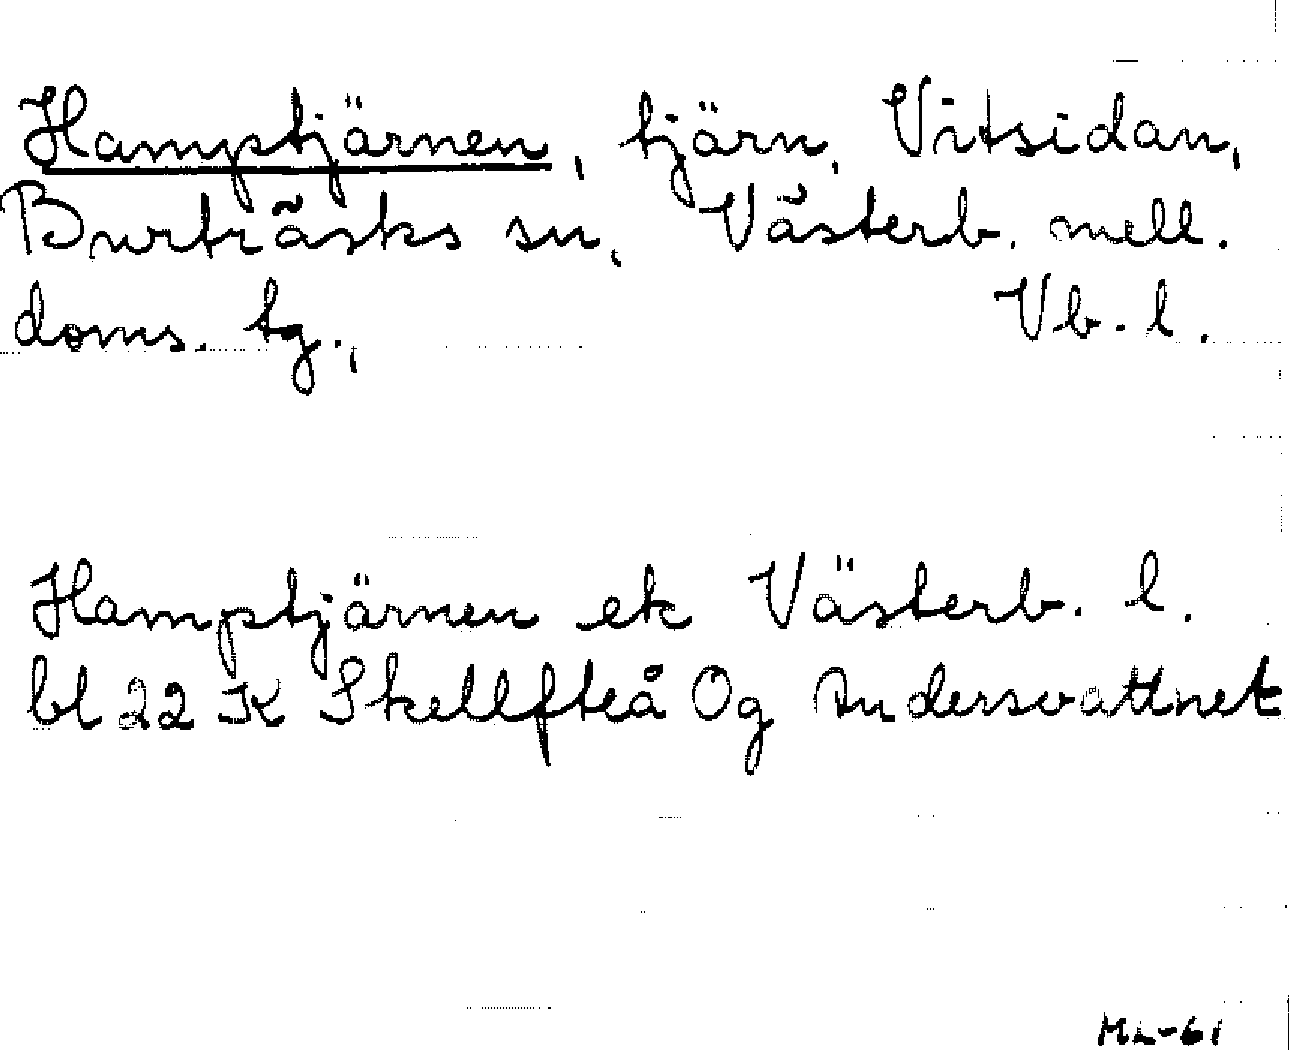 Hamptjärnen, tjärn, Vitsidan,
Burträsks sn, Västerb. mell.
doms. tg., Vb. l.
Hamptjärnen ek Västerb. l.
bl 22 K Skellfteå Og Andersvattnet
ML-61